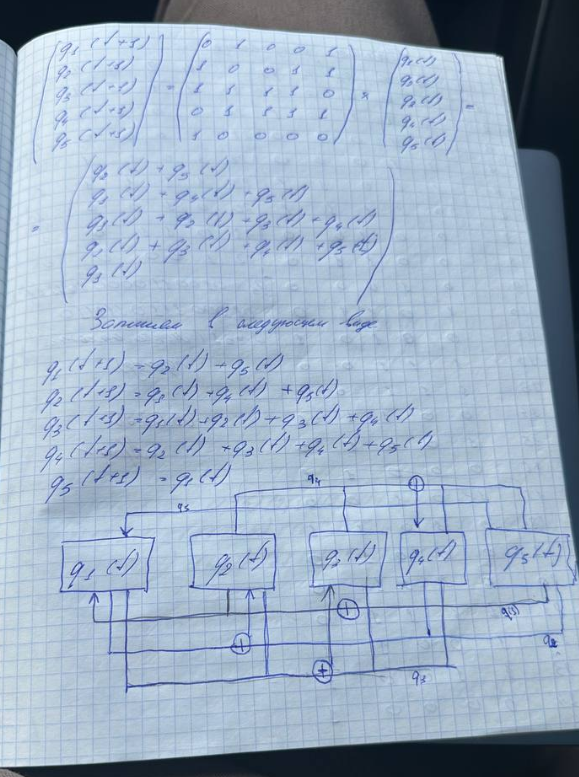 q1(t+1) 0 1 0 0 1 q1(t)
q2(t+1) 1 0 0 1 1 q2(t)
q3(t+1) = 1 1 1 1 0 × q3(t) =
q4(t+1) 0 1 1 1 1 q4(t)
q5(t+1) 1 0 0 0 0 q5(t)
q2(t) + q5(t)
q1(t) + q4(t) + q5(t)
= q1(t) + q2(t) + q3(t) + q4(t)
q2(t) + q3(t) + q4(t) + q5(t)
q1(t)
Запишем в следующем виде
q1(t+1) = q2(t) + q5(t)
q2(t+1) = q1(t) + q4(t) + q5(t)
q3(t+1) = q1(t) + q2(t) + q3(t) + q4(t)
q4(t+1) = q2(t) + q3(t) + q4(t) + q5(t)
q5(t+1) = q1(t)
q4 +
q5
q1(t) q2(t) q3(t) q4(t) q5(t)
+
+ q2
+ q3